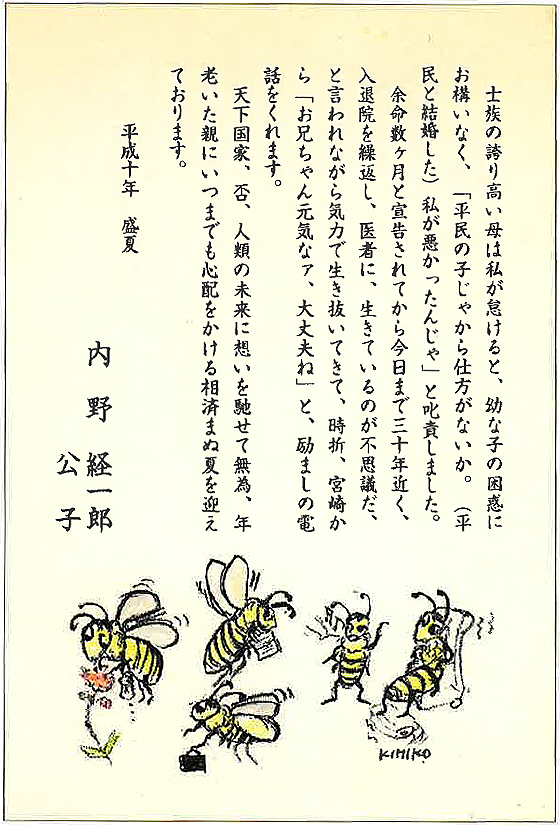 士族の誇り高い母は私が怠けると、幼な子の困惑に
お構いなく、「平民の子じゃから仕方がないか。（平
民と結婚した）私が悪かったんじゃ」と叱責しました。
余命数ヶ月と宣告されてから今日まで三十年近く、
入退院を繰返し、医者に、生きているのが不思議だ、
と言われながら気力で生き抜いてきて、時折、宮崎か
ら「お兄ちゃん元気なァ、大丈夫ね」と、励ましの電
話をくれます。
天下国家、否、人類の未来に想いを馳せて無為、年
老いた親にいつまでも心配をかける相済まぬ夏を迎え
ております。
平成十年　盛夏
内野　経一郎
公子
KIMIKO